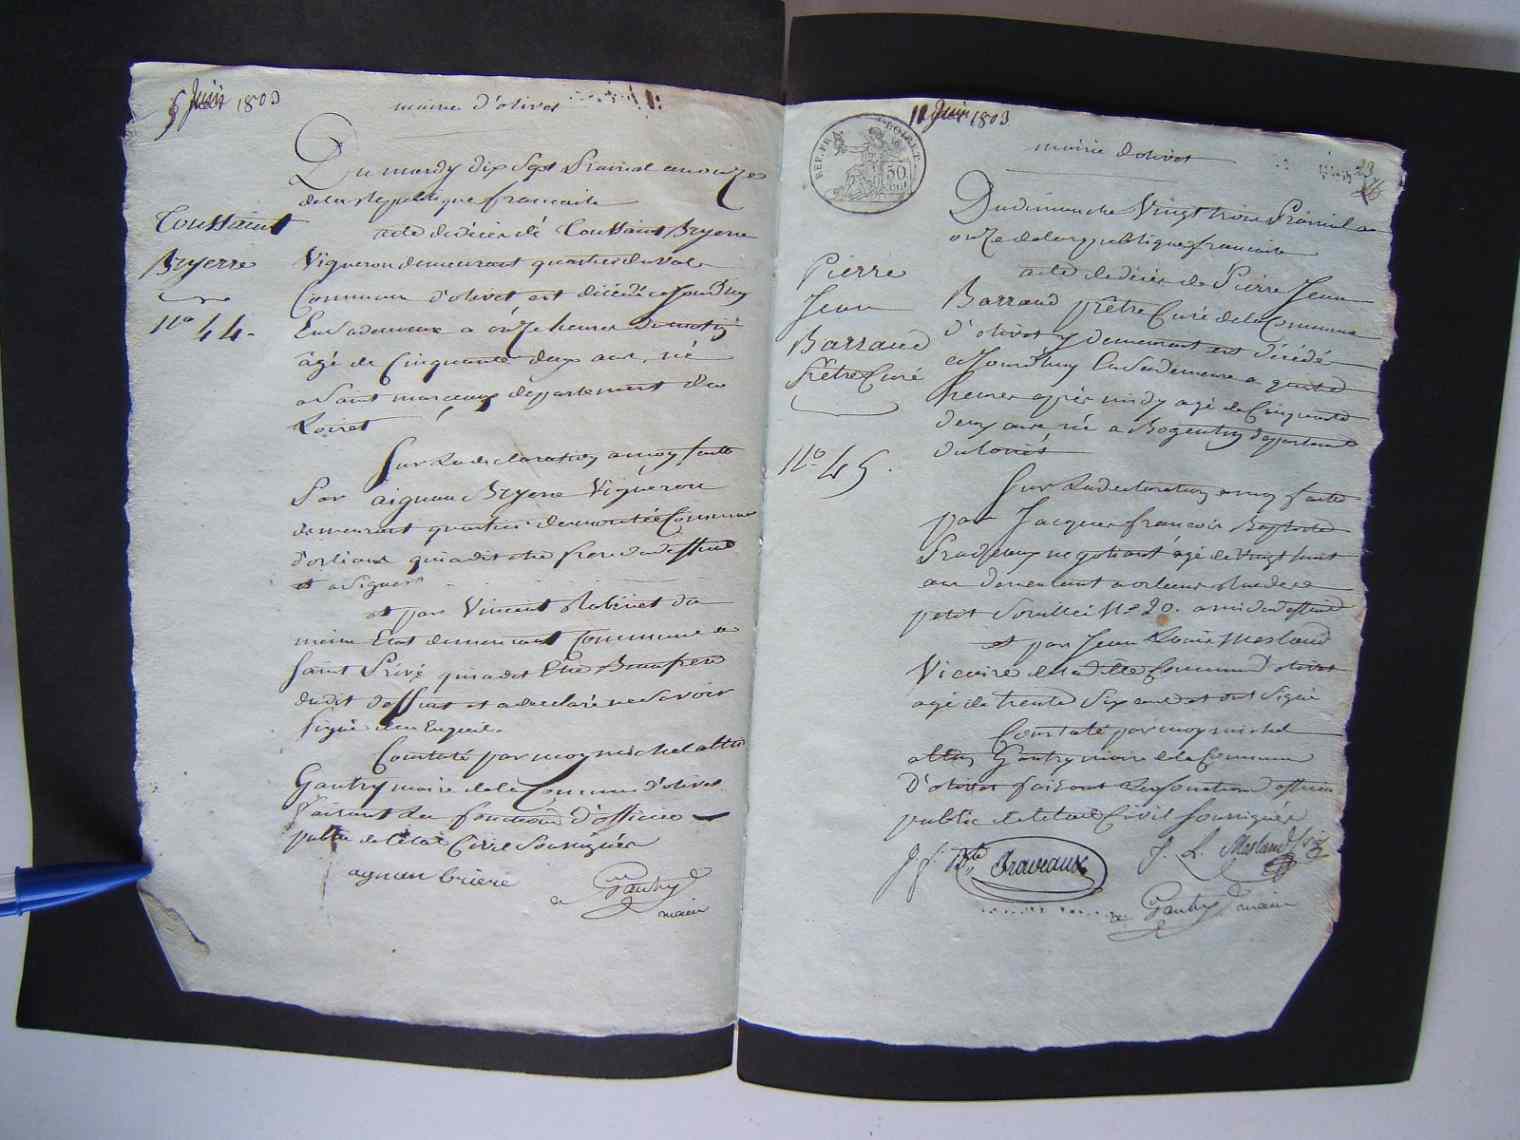 Juin 1803
mairie d'olivet
Du mardy dix Sept Prairial an onze
de la Republique francaise
acte de déces de Toussaint Bryerre
Toussaint
Bryerre
No 44.
Vigneron demeurant quartier du val
Commune d'olivet est décédé ce Jourd'huy
En Sa demeure a onze heures Du matin
âgé de Cinquante deux ans, né
a Saint marceaux departement du
Loiret
Sur La declaration a moy faite
Par aignan Bryerre Vigneron
demeurant quartier Commune
d'orleans qui a dit etre frere du deffunt
et a Signer
et par Vincent Robinet du
meme Etat demeurant Commune de
Saint Privé qui a dit Etre Beaufrere
dudit deffunt et a declaré ne Savoir
Signé de ce Enquis.
Constaté par moy michel altin
Gautry maire de la Commune d'olivet
Faisant Les fonctions d'officier
public de l'état Civil Soussignés
aignan brière
Gautry
maire
11 Juin 1803
REP. FRA. LOIRET.
50
mairie d'olivet
23
Du dimanche Vingt trois Prairial an
onze de la republique francaise
acte de déces de Pierre Jean
Pierre
Jean
Barraud
Prêtre Curé
No. 45.
Barraud prêtre Curé de la Commune
d'olivet y demeurant est décédé
ce Jourd'huy En Sa demeure a quatre
heures après midy agé de Cinquante
deux ans né a Bogenty departement
du loiret
Sur La declaration a moy faite
par Jacques francois Baptiste
Travseaux negotiant agé de Vingt huit
ans demeurant a orleans Rue de
petit Souillé No 20. ami du deffunt
et par Jean Louis Mesland
Vicaire de la dite Commune d'olivet
agé de trente Six ans et ont Signé
Constaté par moy michel
altin Gautry maire de la Commune
D'olivet faisant Les fonctions d'officier
public de l'état Civil Soussignés
J. f. Bte Traveaux
J. L. Mesland
Gautry maire